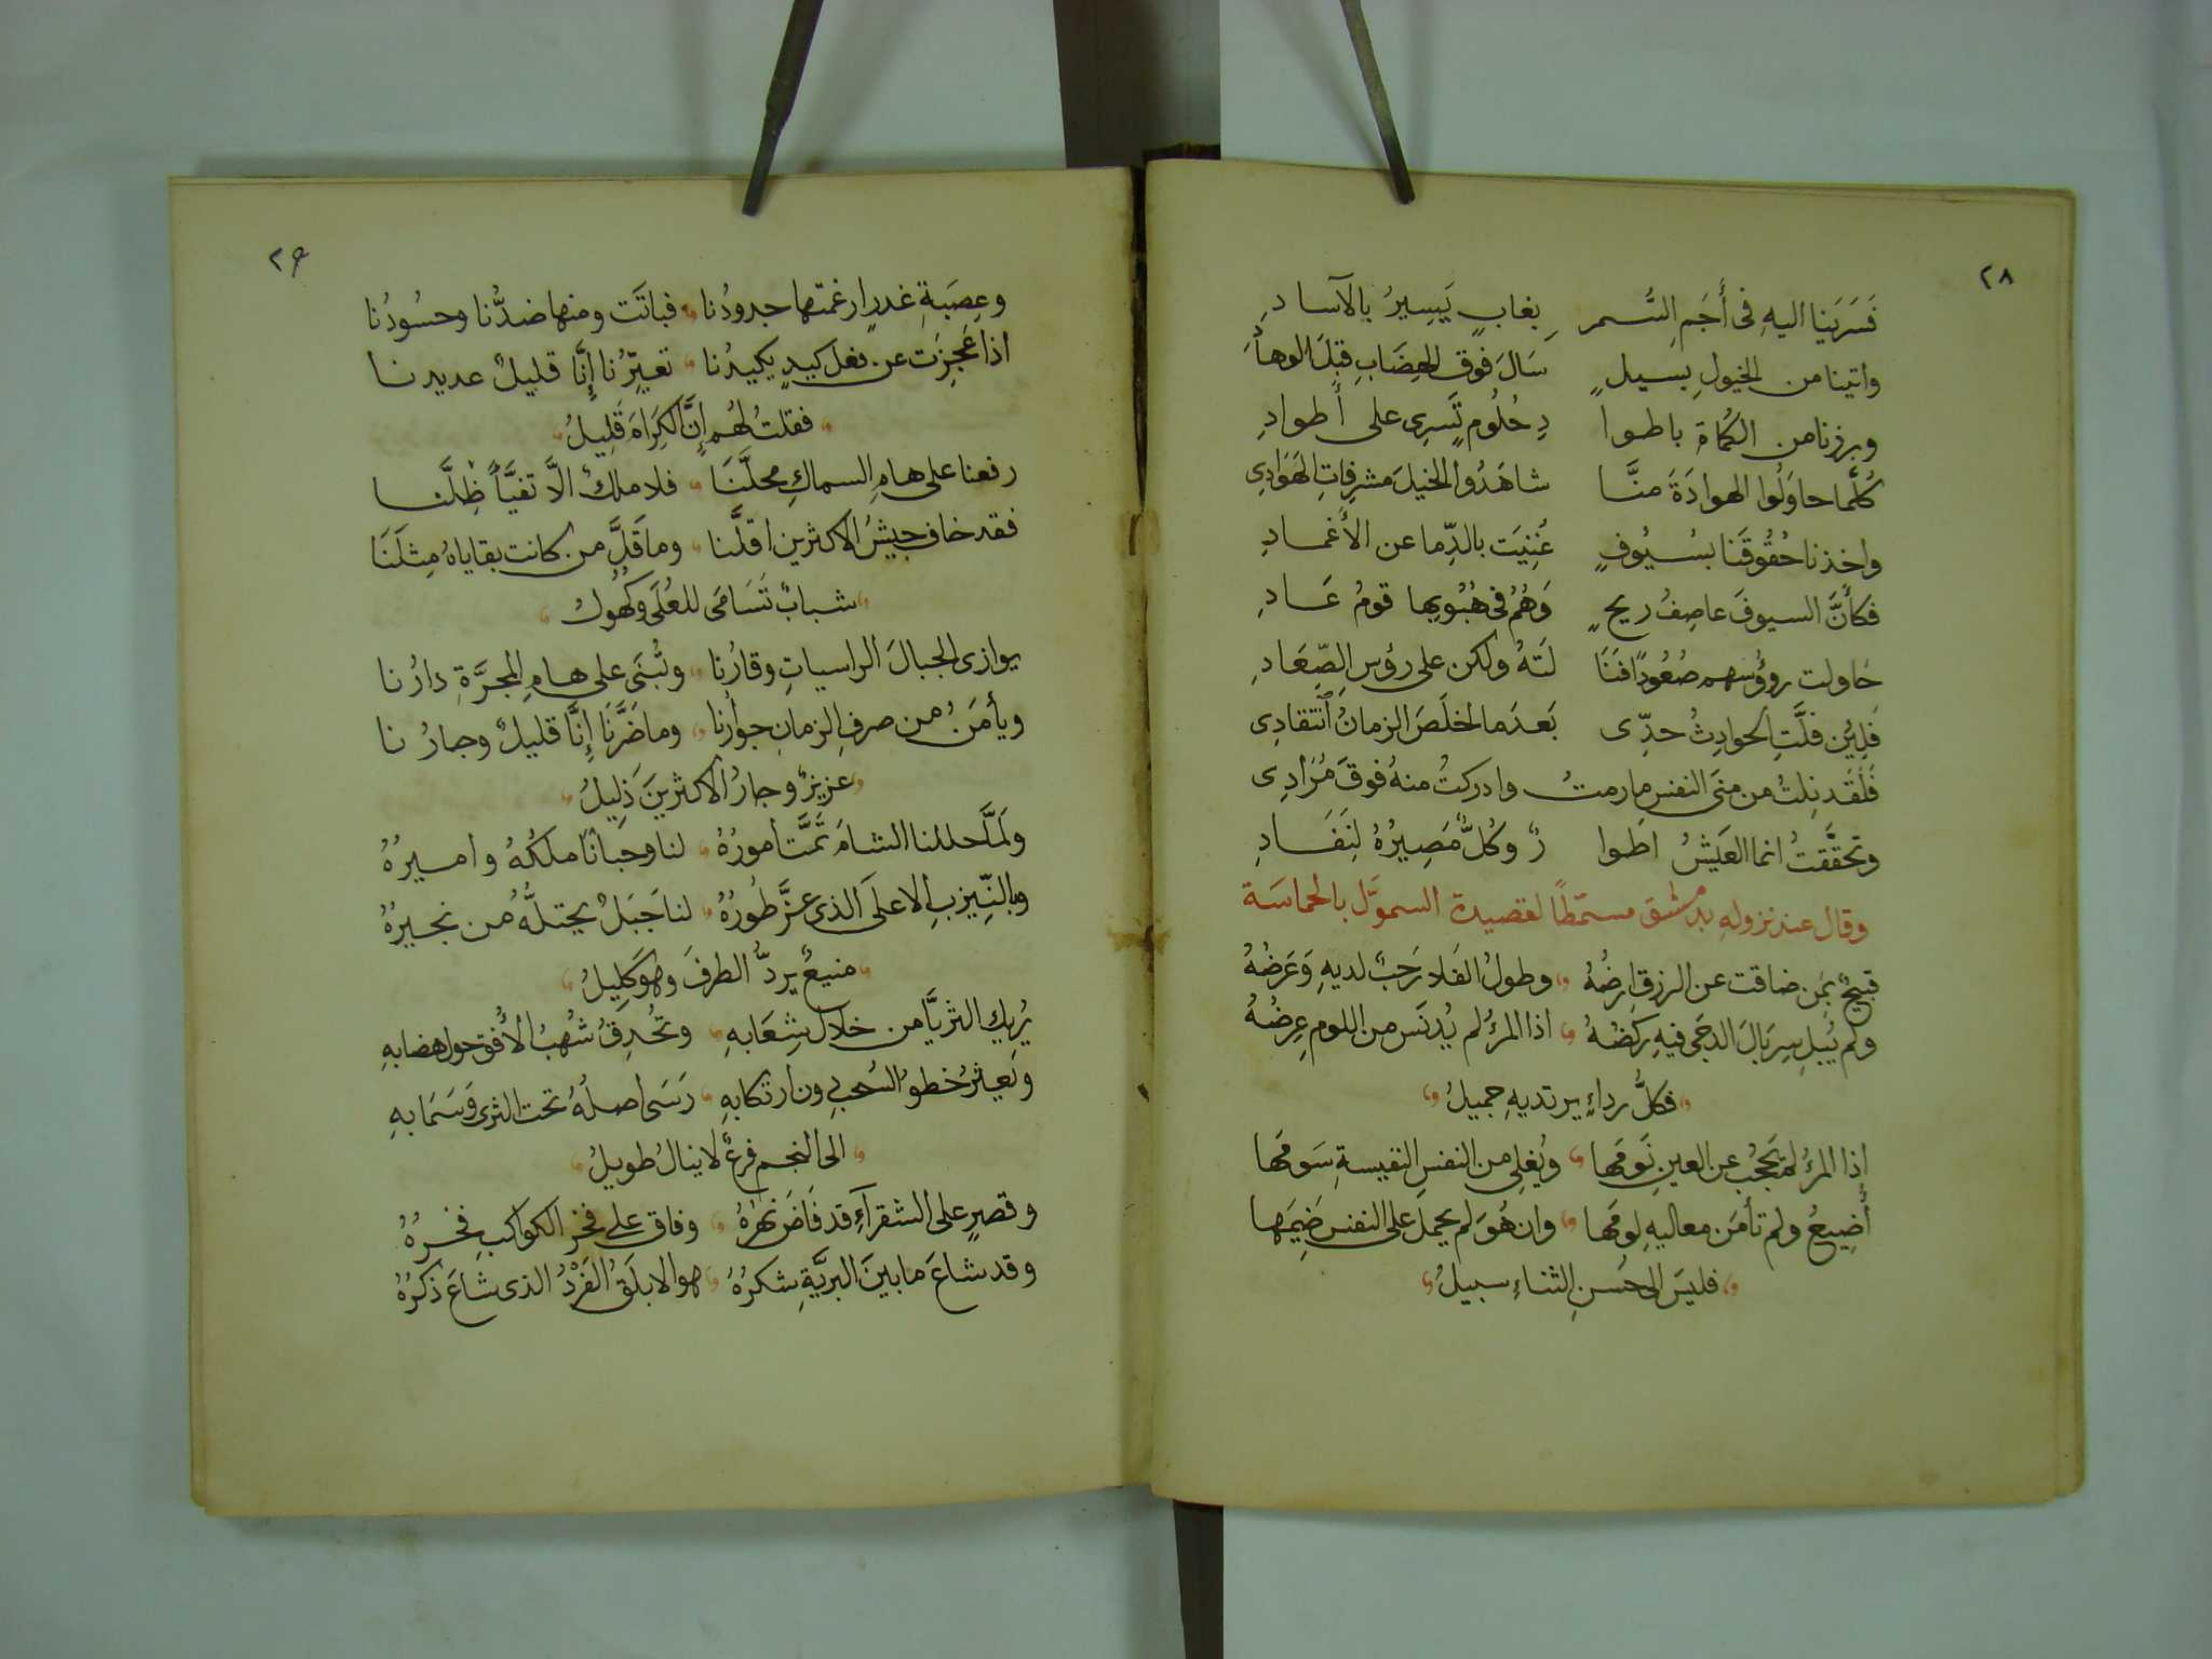 ٢٨
فَسَرَينا اليهِ فى أَجَمِ السُّمر بِغابٍ يَسِيرُ بالآسادِ
واتينا من الخيولِ بسيلٍ سَالَ فوق الهِضَابِ قبلَ الوهادِ
وبرزنا من الكُماة باطوا دِ حُلُومٍ تَسرِى على أطوادِ
كُلَّما حاوَلُوا الهوادَةَ منَّا شاهَدُوا الخيلَ مشرفاتِ الهَوَادِى
واخذنا حُقُوقَنا بسُيُوفٍ غُنِيَت بالدِّما عن الأَغمادِ
فكأَنَّ السيوفَ عاصِفُ ريحٍ وَهُمُ فى هُبُوبِها قومُ عَادِ
حَاولت روؤُسهم صُعُودًا فنَا لَتهُ ولكن على رؤسِ الصِّعَادِ
فَلِئن فلَّتِ الحوادِثُ حدِّى بَعدَما اخلَصَ الزمانُ اُنتقادِى
فَلَقَد نِلتُ من منَى النفسِ مارمتُ وادركتُ منهُ فوقَ مُرَادِى
وتحقَّقتُ انما العَيشُ اطوا رٌ وكُلٌّ مَصِيرُهُ لِنَفَادِ
وقال عند نزولهِ بدمشق مسمّطًا لقصيدة السموَل بالحماسَة
قبيحٌ بمَن ضاقت عن الرزقِ ارضُهُ وطولُ الفَلا رَحبٌ لديهِ وَعَرضُهُ
ولم يُبلِ سِربَالَ الدجَى فيهِ رَكضُهُ اذا المرءُ لم يُدنَس من اللوم عِرضُهُ
فكلُّ رداءٍ يرتديهِ جميلُ
اذا المرءُ لم يَحجُب عن العينِ نَومَها ويُغلى من النفسِ النفيسةِ سَومَها
أُضِيعُ ولم تأمَن معاليهِ لومَها وان هُوَ لم يحمِل على النفسِ ضَيمَها
فليسَ الى حُسنِ الثناءِ سبيلُ
٢٩
وعِصَبةِ غدرٍ ارغمتها جدودُنا فباتَت ومنها ضدُّنا وحسُودُنا
اذا عَجِزَت عن فعل كيدٍ يكيدُنا تعيِّرُنا إِنَّا قليلٌ عديدنا
فقلتُ لهُم إِنَّ الكِرَامَ قَلِيلُ
رفعنا على هامِ السماكِ محلَّنَا فلا ملكٌ الاَّ تفيَّأَ ظِلَّنا
فقد خاف جيشُ الاكثرين اقلَّنا وما قَلَّ من كانت بقاياهُ مِثلَنَا
شبابٌ تَسَامَى للعُلَى وكُهُولُ
يوازى الجبالَ الراسياتِ وقارُنا وتُبنَى على هامِ المجرَّةِ دارُنا
ويأمَنُ من صرفِ الزمانِ جوارُنا وما ضَرَّنَا إِنَّا قليلٌ وجارُنا
عزيزٌ وجارُ الاكثرينَ ذليلُ
ولَمَّا حللنا الشامَ تَمَّت أمورُهُ لنا وحبانا ملكُهُ واميرُهُ
وبالنَّيربِ الاعلَى الذى عزَّ طُورُهُ لنا جَبَلٌ يحتلُّهُ من نجيرُهُ
منيعٌ يردُّ الطرفَ وهوَ كلِيلُ
يُرِيك الثريَّا من خلالِ شِعَابهِ وتُحدِقُ شُهبُ الأُفقِ حول هضابهِ
ويَعثرُ خطوُ السُحبِ دون ارتكابهِ رَسَى أصلُهُ تحت الثرى وَسَمَا بهِ
الى النجم فرعٌ لا ينالُ طويلُ
وقصرٍ على الشقرآءِ قد فَاضَ نهرُهُ وفاق على فخرِ الكواكبِ فخرُهُ
وقد شاعَ ما بينَ البريَّةِ شكرُهُ هو الابلَقُ الفَرْدُ الذى شاعَ ذكرُهُ